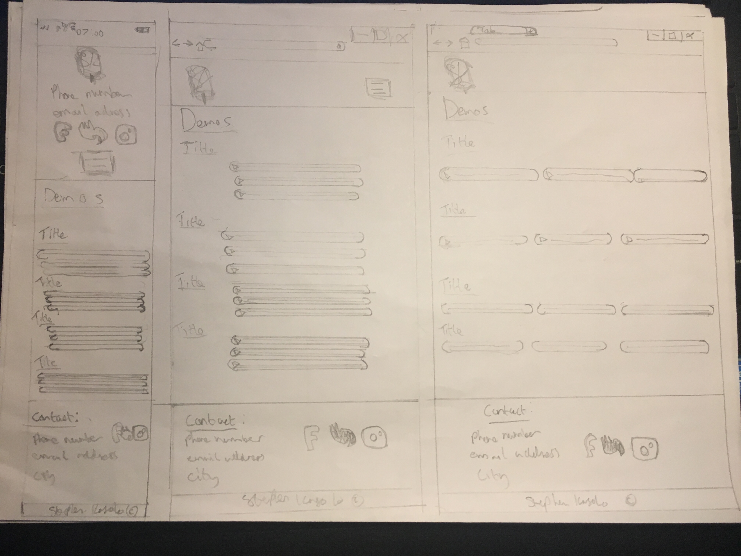 Phone number
email address
Demos
Title
Title
Title
Title
Contact:
Phone number
email address
City
Demos
Title
Title
Title
Title
Contact:
Phone number
email address
City
Demos
Title
Title
Title
Title
Contact:
Phone number
email address
City
Stephen